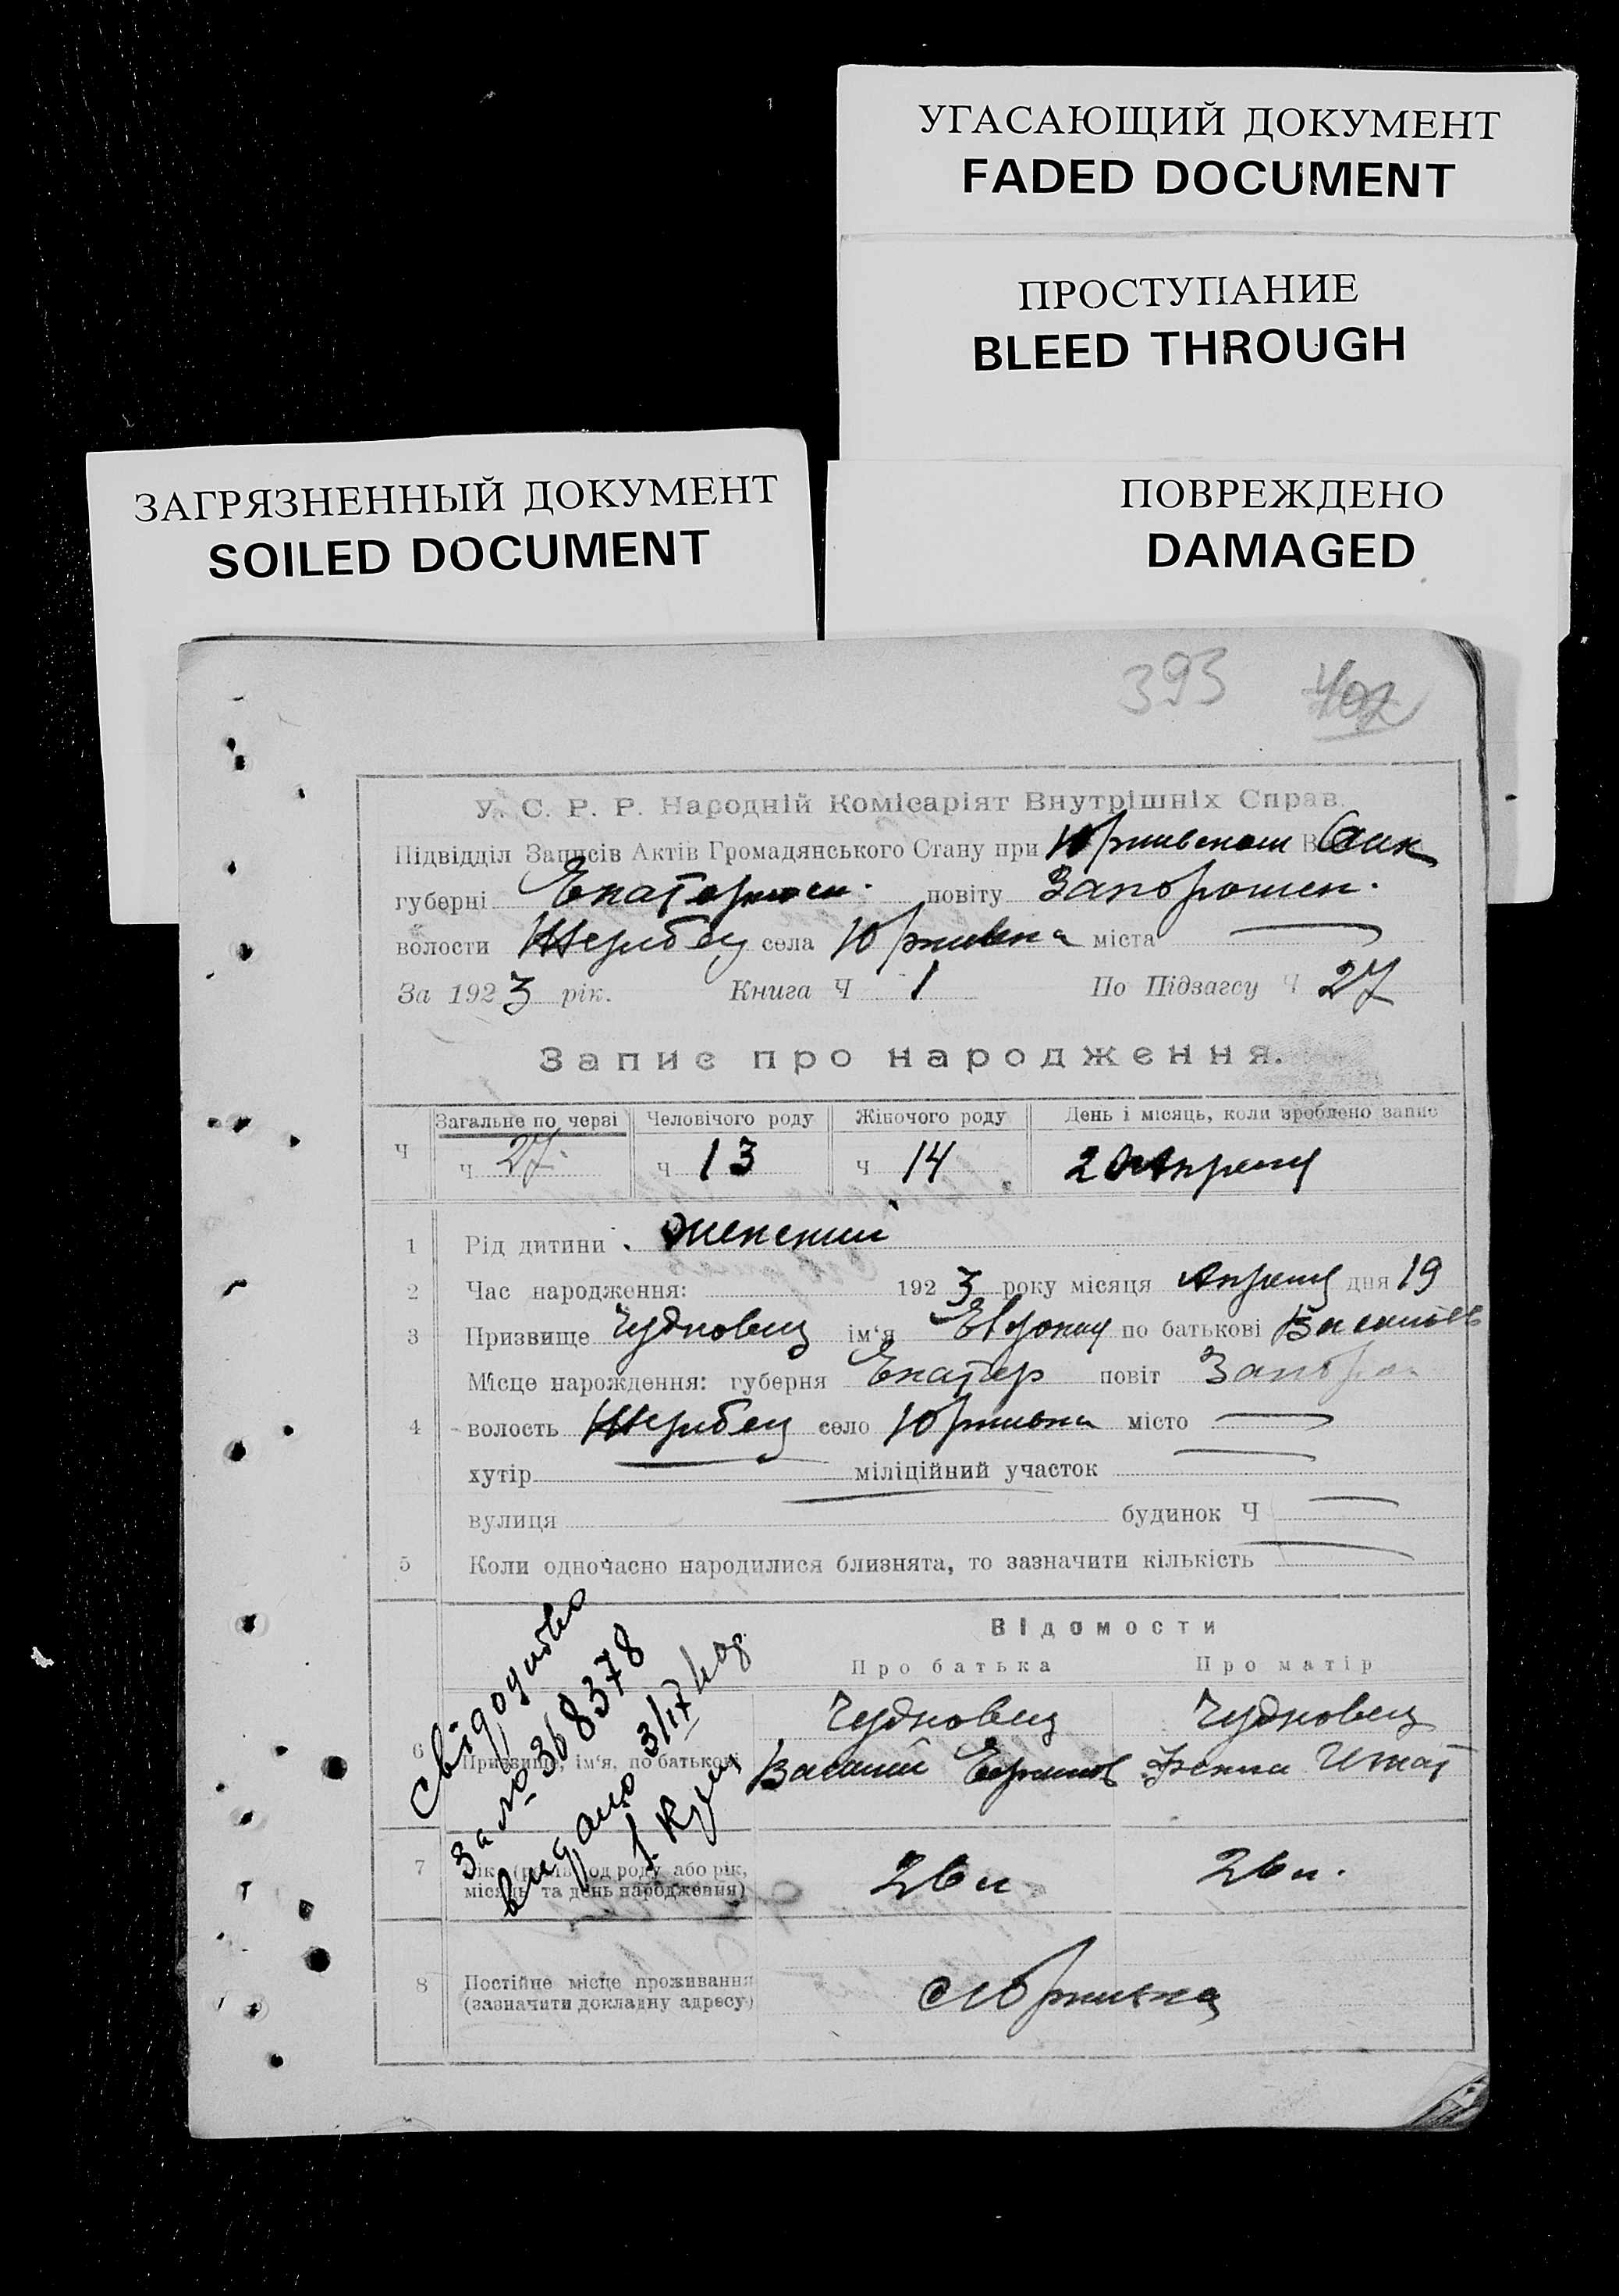 УГАСАЮЩИЙ ДОКУМЕНТ
FADED DOCUMENT
ПРОСТУПАНИЕ
BLEED THROUGH
ЗАГРЯЗНЕННЫЙ ДОКУМЕНТ
SOILED DOCUMENT
ПОВРЕЖДЕНО
DAMAGED
393 402
У. С. Р. Р. Народній Комісаріят Внутрішніх Справ.
Підвідділ Записів Актів Громадянського Стану при Юркивском
губерні Екатерин. повіту Запорожск.
волости Жеребец села Юркивка міста —
За 1923 рік. Книга Ч 1 По Підзагсу Ч 27
Запис про народження.
Загальне по черзі Человічого роду Жіночого роду День і місяць, коли зроблено запис
Ч ч 27. ч 13 ч 14 20 Апреля
1 Рід дитини Женский
2 Час народження: 1923 року місяця Апреля дня 19
3 Призвище Чудновец ім'я по батькові
Місце нарождення: губерня Екатер повіт Запор
4 волость Жеребец село Юркивка місто —
хутір — міліційний участок —
вулиця — будинок Ч —
5 Коли одночасно народилися близнята, то зазначити кількість —
Відомости
Про батька Про матір
Чудновец Чудновец
6 Призвище, ім'я, по батькові Василий Ксения Игнат
7 Вік (рoків) од роду або рік, 26 л 26 л.
місяць та день народження)
8 Постійне місце проживання с Юркивка
(зазначити докладну адресу)
свідодство
за № 368378
видано 3/IV